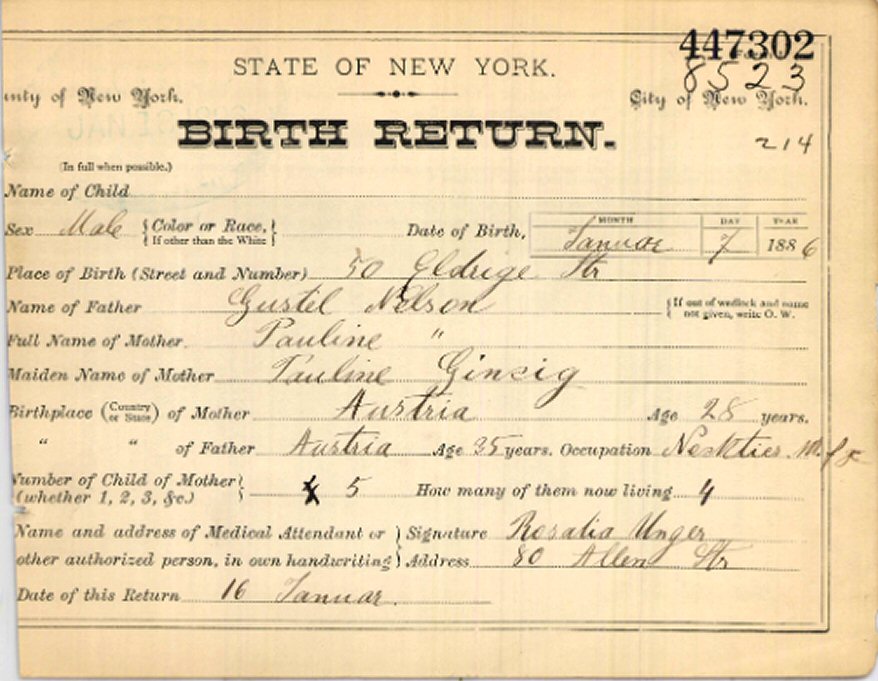 447302
STATE OF NEW YORK.
8523
unty of New York.
City of New York.
BIRTH RETURN.
214
(In full when possible.)
Name of Child
Sex Male {Color or Race, If other than the White} Date of Birth, MONTH Januar DAY 7 YEAR 1886
Place of Birth (Street and Number) 50 Eldrige Str
Name of Father Gustel Nelson {If out of wedlock and name not given, write O. W.
Full Name of Mother Pauline "
Maiden Name of Mother Pauline Ginzig
Birthplace (Country or State) of Mother Austria Age 28 years.
" " of Father Austria Age 35 years. Occupation Neckties
Number of Child of Mother (whether 1, 2, 3, &c.) 5 How many of them now living 4
Name and address of Medical Attendant or } Signature Rosalia Unger
other authorized person, in own handwriting } Address 80 Allen Str
Date of this Return 16 Januar.